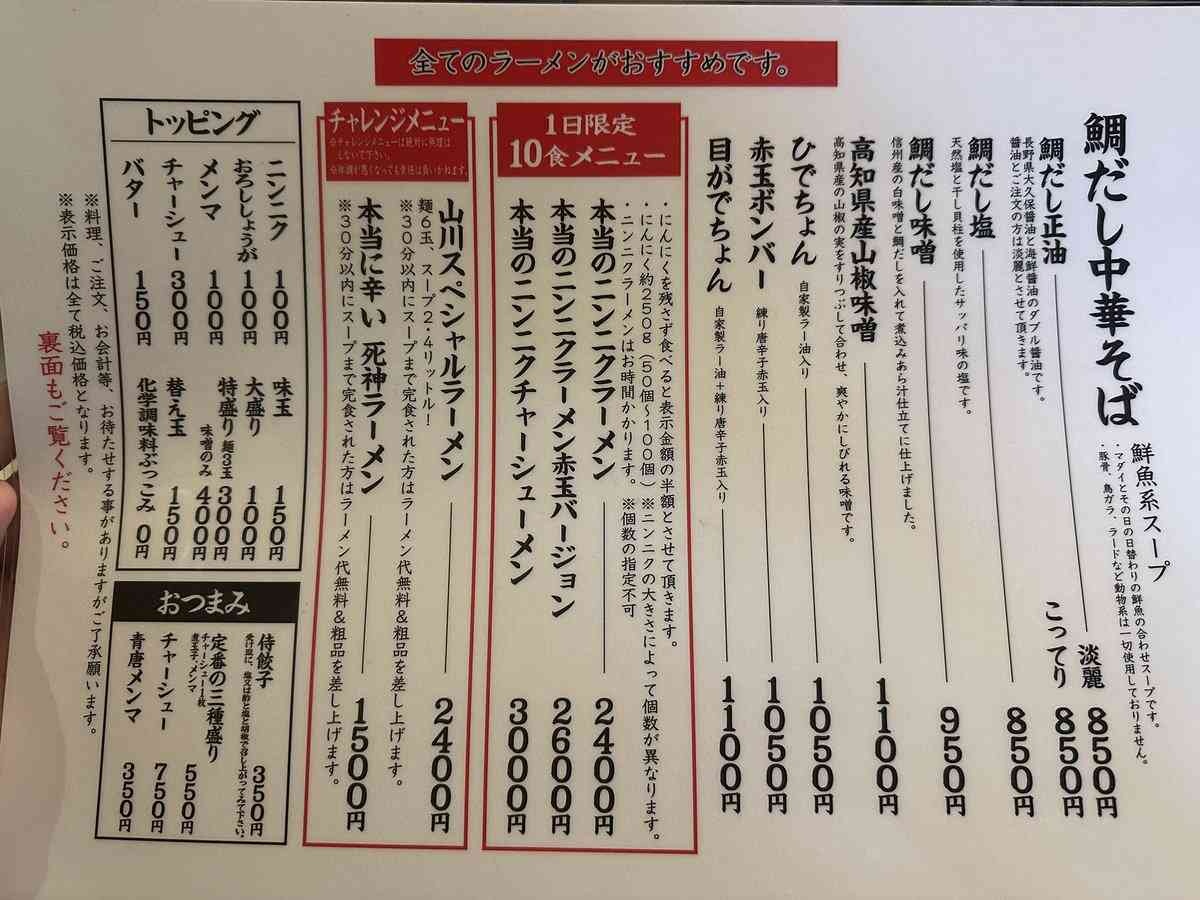 全てのラーメンがおすすめです。
鯛だし中華そば
鮮魚系スープ
・マダイとその日の日替わりの鮮魚の合わせスープです。
・豚骨、鳥ガラ、ラードなど動物系は一切使用しておりません。
鯛だし正油 淡麗 850円
こってり 850円
長野県大久保醤油と海鮮醤油のダブル醤油です。
醤油とご注文の方は淡麗とさせて頂きます。
鯛だし塩 850円
天然塩と干し貝柱を使用したサッパリ味の塩です。
鯛だし味噌 950円
信州産の白味噌と鯛だしを入れて煮込みあら汁仕立てに仕上げました。
高知県産山椒味噌 1100円
高知県産の山椒の実をすりつぶして合わせ、爽やかにしびれる味噌です。
ひでちょん 自家製ラー油入り 1050円
赤玉ボンバー 練り唐辛子赤玉入り 1050円
目がでちょん 自家製ラー油+練り唐辛子赤玉入り 1100円
1日限定
10食メニュー
・にんにくを残さず食べると表示金額の半額とさせて頂きます。
・にんにく約250g(50個~100個)※ニンニクの大きさによって個数が異なります。
・ニンニクラーメンはお時間かかります。※個数の指定不可
本当のニンニクラーメン 2400円
本当のニンニクラーメン赤玉バージョン 2600円
本当のニンニクチャーシューメン 3000円
チャレンジメニュー
※チャレンジメニューは絶対に無理は
しないで下さい。
※体調が悪くなっても責任は負いかねます。
山川スペシャルラーメン 2400円
麺6玉、スープ2.4リットル!
※30分以内にスープまで完食された方はラーメン代無料&粗品を差し上げます。
本当に辛い 死神ラーメン 1500円
※30分以内にスープまで完食された方はラーメン代無料&粗品を差し上げます。
トッピング
ニンニク 100円
おろししょうが 100円
メンマ 100円
チャーシュー 300円
バター 150円
味玉 150円
大盛り 100円
特盛り 麺3玉 300円
味噌のみ 400円
替え玉 150円
化学調味料ぶっこみ 0円
おつまみ
侍餃子 350円
受け皿に、塩又は酢と塩と胡椒で召し上がってみて下さい。
定番の三種盛り 550円
チャーシュー1枚
煮玉子、メンマ
チャーシュー 750円
青唐メンマ 350円
※料理、ご注文、お会計等、お待たせする事がありますがご了承願います。
※表示価格は全て税込価格となります。
裏面もご覧ください。